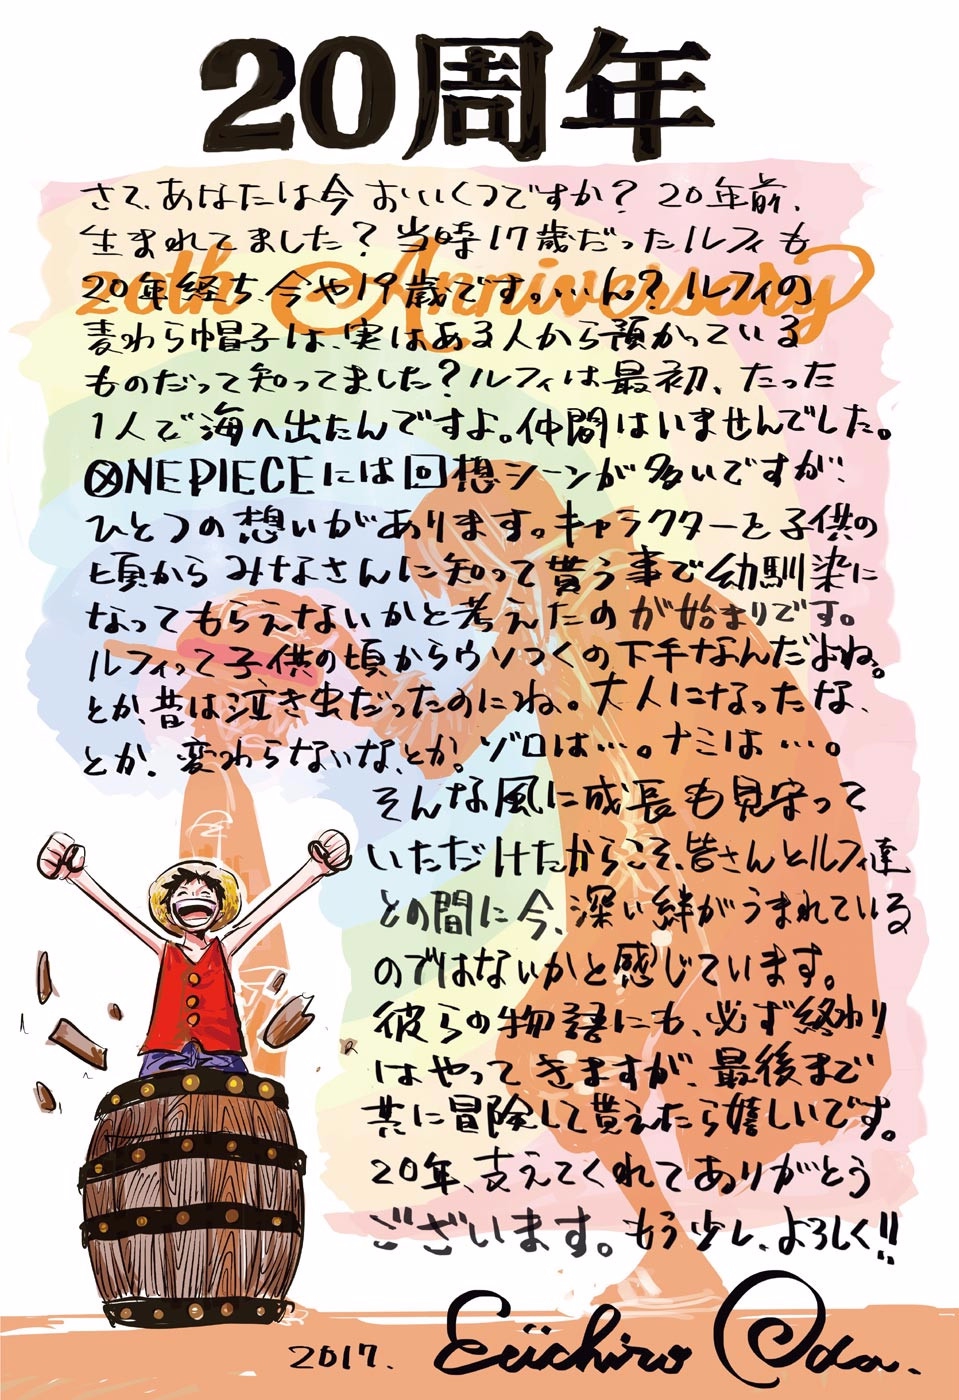 20周年
さて、あなたは今おいくつですか？20年前、
生まれてました？当時17歳だったルフィも
20th Anniversary
20年経ち、今や19歳です。…ん？ルフィの
麦わら帽子は、実はある人から預かっている
ものだって知ってました？ルフィは最初、たった
1人で海へ出たんですよ。仲間はいませんでした。
ONE PIECEには回想シーンが多いですが、
ひとつの想いがあります。キャラクターを子供の
頃からみなさんに知って貰う事で幼馴染に
なってもらえないかと考えたのが始まりです。
ルフィって子供の頃からウソつくの下手なんだよね。
とか、昔は泣き虫だったのにね。大人になったな、
とか、変わらないな、とか。ゾロは…。ナミは…。
そんな風に成長も見守って
いただけたからこそ、皆さんとルフィ達
との間に今、深い絆がうまれている
のではないかと感じています。
彼らの物語にも、必ず終わり
はやってきますが、最後まで
共に冒険して貰えたら嬉しいです。
20年、支えてくれてありがとう
ございます。もう少し、よろしく!!
2017. Eiichiro Oda.